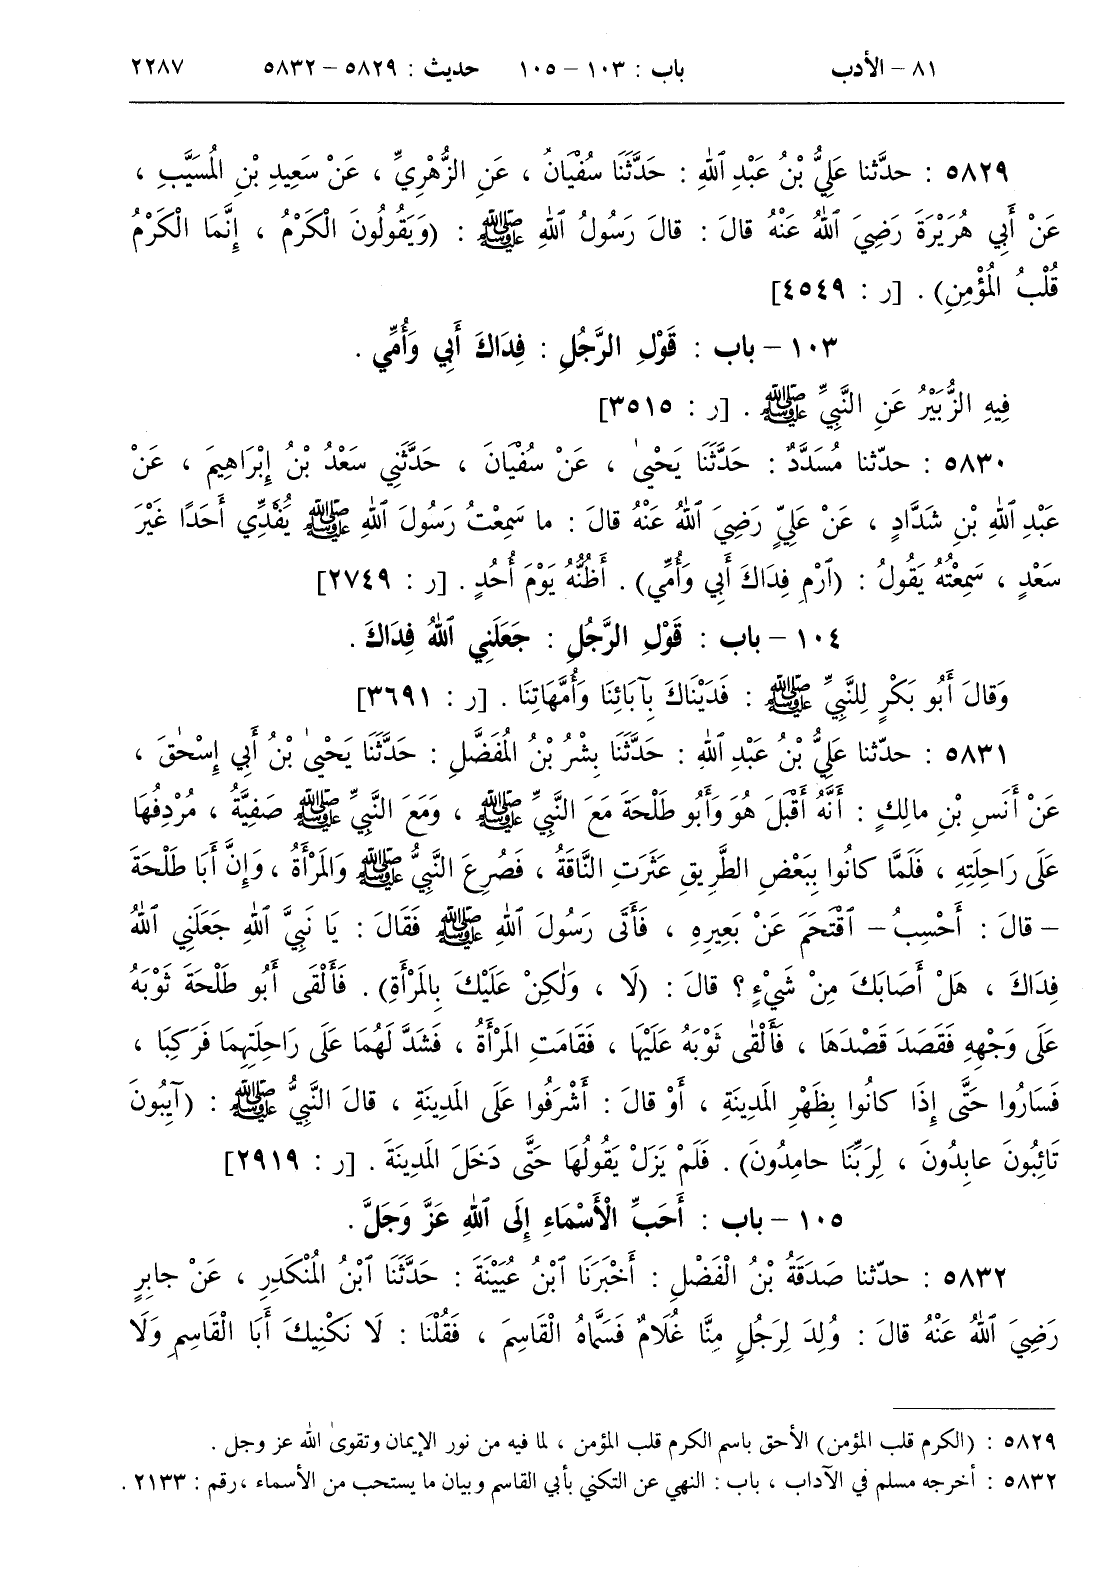 ٨١ – الأدب باب : ١٠٣ – ١٠٥ حديث : ٥٨٢٩ – ٥٨٣٢ ٢٢٨٧
٥٨٢٩ : حدّثنا عَلِيُّ بْنُ عَبْدِ ٱللهِ : حَدَّثَنَا سُفْيَانُ ، عَنِ الزُّهْرِيِّ ، عَنْ سَعِيدِ بْنِ الْمُسَيَّبِ ،
عَنْ أَبِي هُرَيْرَةَ رَضِيَ ٱللهُ عَنْهُ قالَ : قالَ رَسُولُ ٱللهِ ﷺ : (وَيَقُولُونَ الْكَرْمُ ، إِنَّمَا الْكَرْمُ
قُلْبُ الْمُؤْمِنِ) . [ر : ٤٥٤٩]
١٠٣ – باب : قَوْلِ الرَّجُلِ : فِدَاكَ أَبِي وَأُمِّي .
فِيهِ الزُّبَيْرُ عَنِ النَّبِيِّ ﷺ . [ر : ٣٥١٥]
٥٨٣٠ : حدّثنا مُسَدَّدٌ : حَدَّثَنَا يَحْيىٰ ، عَنْ سُفْيَانَ ، حَدَّثَنِي سَعْدُ بْنُ إِبْرَاهِيمَ ، عَنْ
عَبْدِ ٱللهِ بْنِ شَدَّادٍ ، عَنْ عَلِيٍّ رَضِيَ ٱللهُ عَنْهُ قالَ : ما سَمِعْتُ رَسُولَ ٱللهِ ﷺ يُفَدِّي أَحَدًا غَيْرَ
سَعْدٍ ، سَمِعْتُهُ يَقُولُ : (ٱرْمِ فِدَاكَ أَبِي وَأُمِّي) . أَظُنُّهُ يَوْمَ أُحُدٍ . [ر : ٢٧٤٩]
١٠٤ – باب : قَوْلِ الرَّجُلِ : جَعَلَنِي ٱللهُ فِدَاكَ .
وَقالَ أَبُو بَكْرٍ لِلنَّبِيِّ ﷺ : فَدَيْنَاكَ بِآبَائِنَا وَأُمَّهَاتِنَا . [ر : ٣٦٩١]
٥٨٣١ : حدّثنا عَلِيُّ بْنُ عَبْدِ ٱللهِ : حَدَّثَنَا بِشْرُ بْنُ الْمُفَضَّلِ : حَدَّثَنَا يَحْيىٰ بْنُ أَبِي إِسْحٰقَ ،
عَنْ أَنَسِ بْنِ مالِكٍ : أَنَّهُ أَقْبَلَ هُوَ وَأَبُو طَلْحَةَ مَعَ النَّبِيِّ ﷺ ، وَمَعَ النَّبِيِّ ﷺ صَفِيَّةُ ، مُرْدِفُهَا
عَلَى رَاحِلَتِهِ ، فَلَمَّا كانُوا بِبَعْضِ الطَّرِيقِ عَثَرَتِ النَّاقَةُ ، فَصُرِعَ النَّبِيُّ ﷺ وَالْمَرْأَةُ ، وَإِنَّ أَبَا طَلْحَةَ
– قالَ : أَحْسِبُ – ٱقْتَحَمَ عَنْ بَعِيرِهِ ، فَأَتَى رَسُولَ ٱللهِ ﷺ فَقَالَ : يَا نَبِيَّ ٱللهِ جَعَلَنِي ٱللهُ
فِدَاكَ ، هَلْ أَصَابَكَ مِنْ شَيْءٍ؟ قالَ : (لَا ، وَلٰكِنْ عَلَيْكَ بِالْمَرْأَةِ) . فَأَلْقَى أَبُو طَلْحَةَ ثَوْبَهُ
عَلَى وَجْهِهِ فَقَصَدَ قَصْدَهَا ، فَأَلْقٰى ثَوْبَهُ عَلَيْهَا ، فَقَامَتِ الْمَرْأَةُ ، فَشَدَّ لَهُمَا عَلَى رَاحِلَتِهِمَا فَرَكِبَا ،
فَسَارُوا حَتَّى إِذَا كانُوا بِظَهْرِ الْمَدِينَةِ ، أَوْ قالَ : أَشْرَفُوا عَلَى الْمَدِينَةِ ، قالَ النَّبِيُّ ﷺ : (آيِبُونَ
تَائِبُونَ عابِدُونَ ، لِرَبِّنَا حامِدُونَ) . فَلَمْ يَزَلْ يَقُولُهَا حَتَّى دَخَلَ الْمَدِينَةَ . [ر : ٢٩١٩]
١٠٥ – باب : أَحَبِّ الْأَسْمَاءِ إِلَى ٱللهِ عَزَّ وَجَلَّ .
٥٨٣٢ : حدّثنا صَدَقَةُ بْنُ الْفَضْلِ : أَخْبَرَنَا ٱبْنُ عُيَيْنَةَ : حَدَّثَنَا ٱبْنُ الْمُنْكَدِرِ ، عَنْ جابِرٍ
رَضِيَ ٱللهُ عَنْهُ قالَ : وُلِدَ لِرَجُلٍ مِنَّا غُلَامٌ فَسَمَّاهُ الْقَاسِمَ ، فَقُلْنَا : لَا نَكْنِيكَ أَبَا الْقَاسِمِ وَلَا
٥٨٢٩ : (الكرم قلب المؤمن) الأحق باسم الكرم قلب المؤمن ، لما فيه من نور الإيمان وتقوىٰ الله عز وجل .
٥٨٣٢ : أخرجه مسلم في الآداب ، باب : النهي عن التكني بأبي القاسم وبيان ما يستحب من الأسماء ، رقم : ٢١٣٣ .